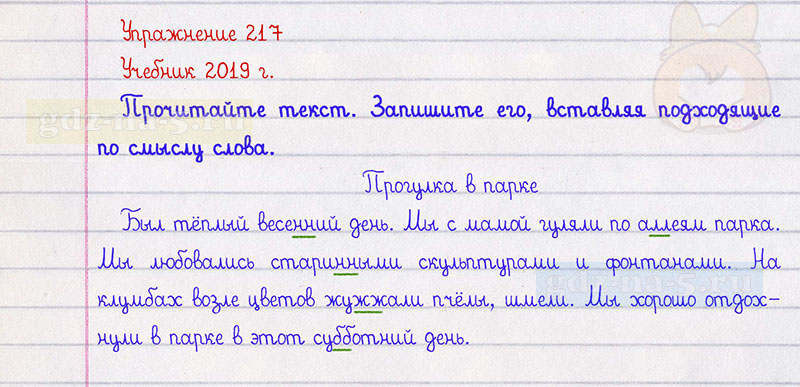 Упражнение 217
Учебник 2019 г.
Прочитайте текст. Запишите его, вставляя подходящие
по смыслу слова.
Прогулка в парке
Был тёплый весенний день. Мы с мамой гуляли по аллеям парка.
Мы любовались старинными скульптурами и фонтанами. На
клумбах возле цветов жужжали пчёлы, шмели. Мы хорошо отдох-
нули в парке в этот субботний день.